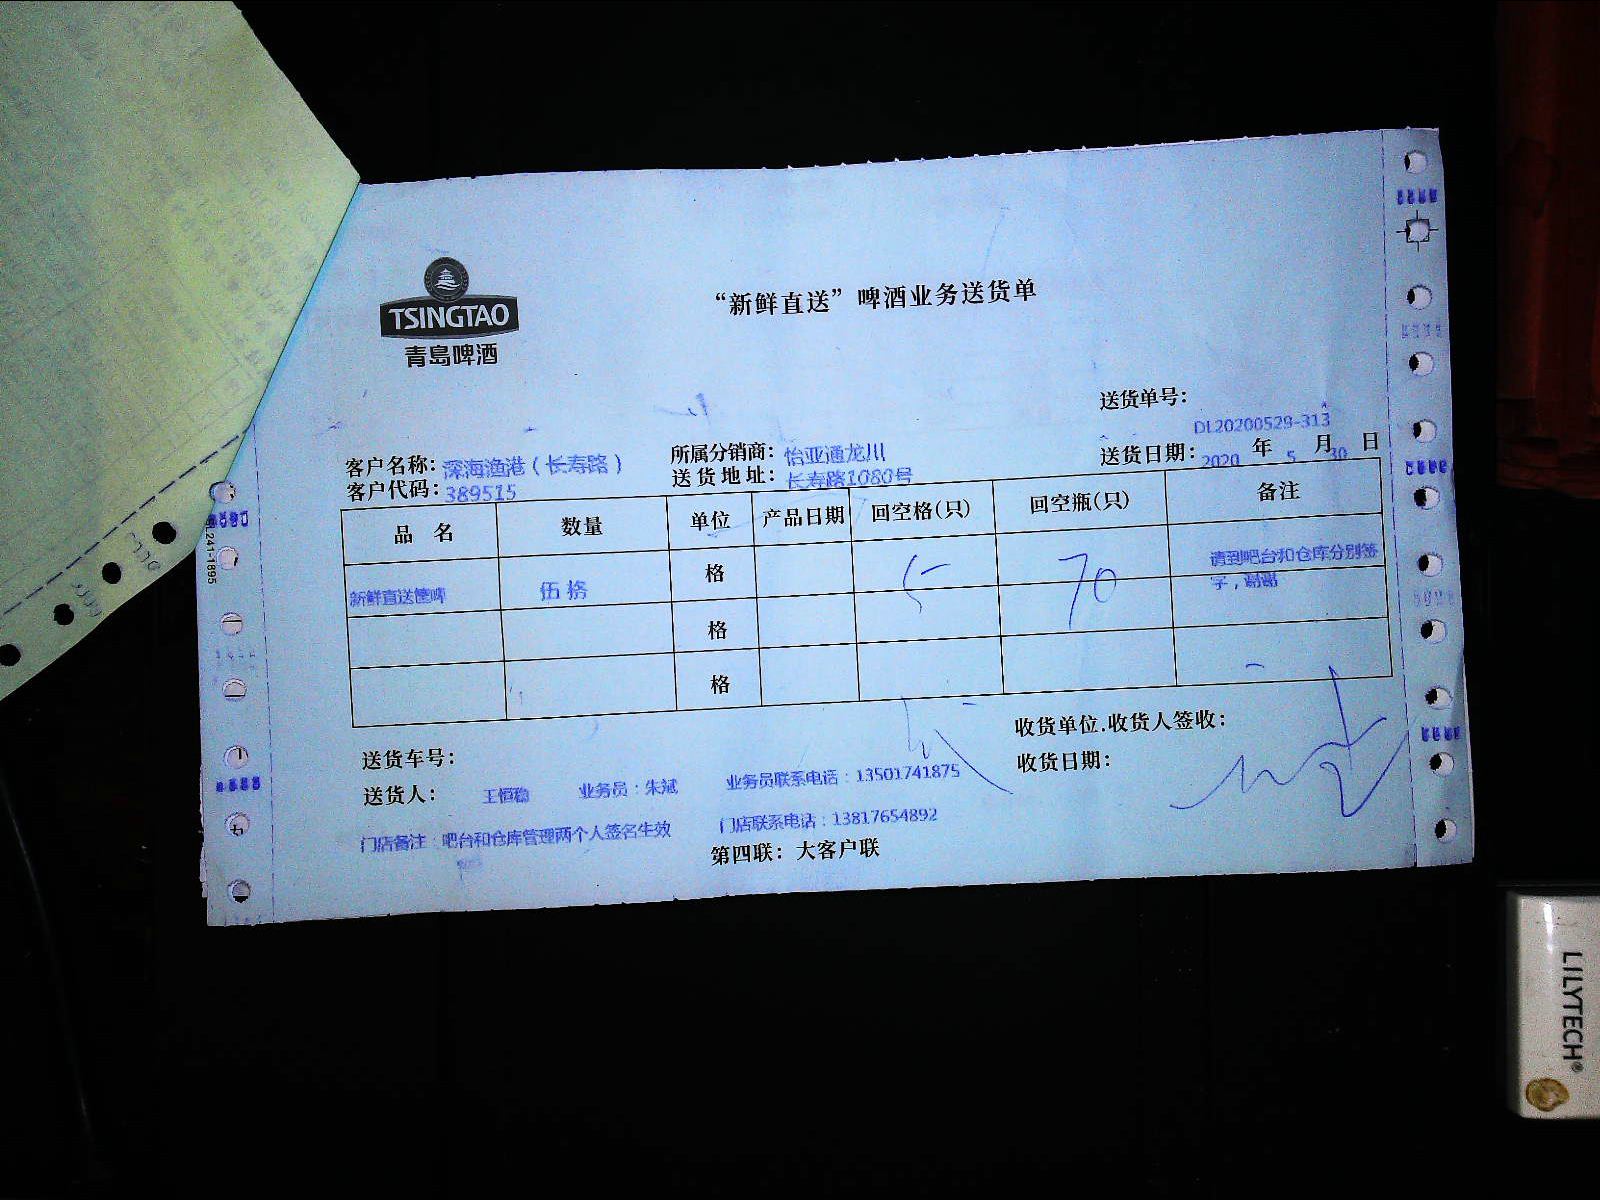 TSINGTAO
青岛啤酒
“新鲜直送”啤酒业务送货单
送货单号：
DL20200529-313
客户名称：深海渔港（长寿路） 所属分销商：怡亚通龙川 送货日期：2020 年 5 月 30 日
客户代码：389515 送货地址：长寿路1080号
品 名 数量 单位 产品日期 回空格(只) 回空瓶(只) 备注
新鲜直送筐啤 伍格 格 5 70 请到吧台和仓库分别签字，谢谢
格
格
送货车号： 收货单位.收货人签收：
送货人： 王恒稳 业务员：朱斌 业务员联系电话：13501741875 收货日期：
门店备注：吧台和仓库管理两个人签名生效 门店联系电话：13817654892
第四联：大客户联
241-1895
LILYTECH®